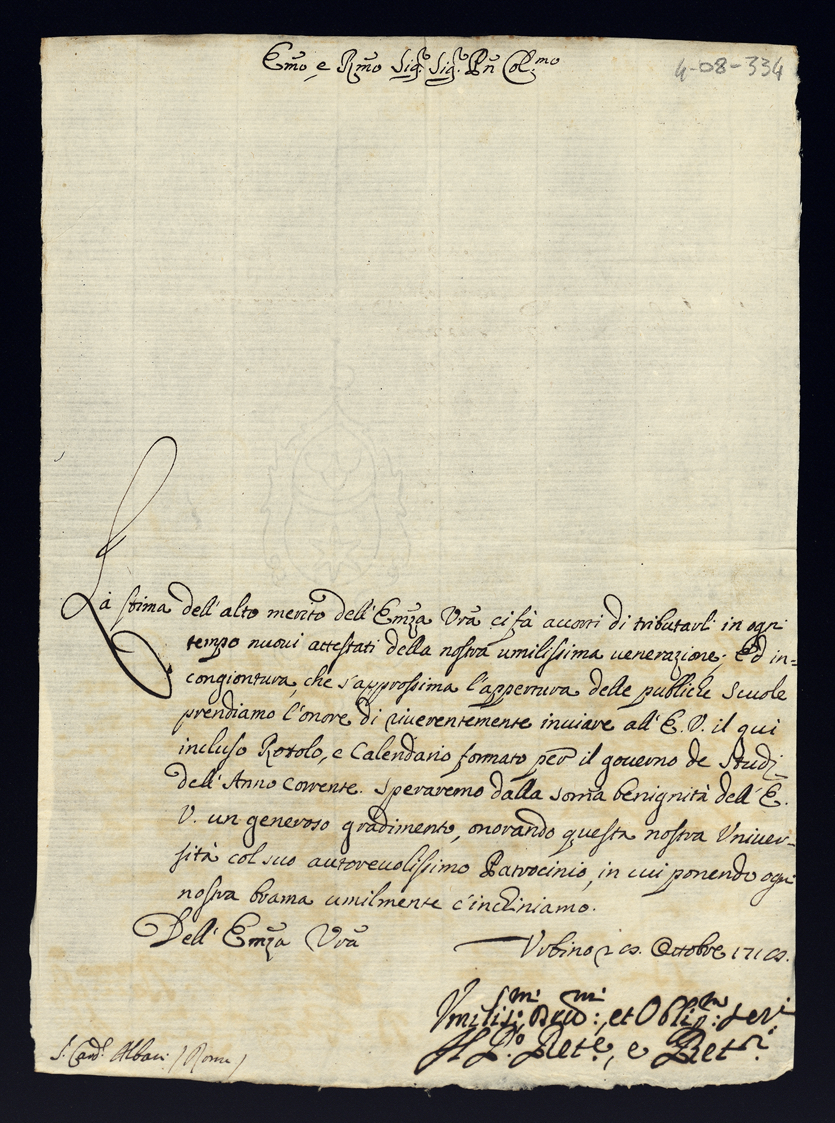 Em̃o e Rm̃o Sig.r Sig.r Pñ Col.mo
4-08-334
La stima dell'alto merito dell'Em̃za Vrã ci fà accorti di tributarli in ogni
tempo nuovi attestati della nostra umilissima venerazione; Ed in=
congiontura, che s'approssima l'appertura delle publiche scuole
prendiamo l'onore di riverentemente inviare all'E. V. il qui
incluso Rotolo, e Calendario formato per il governo de Studj
dell'Anno corrente. Speraremo dalla som̃a benignità dell'E.
V. un generoso gradimento, onorando questa nostra Univer-
sità col suo autorevolissimo Patrocinio, in cui ponendo ogni
nostra brama umilmente c'inchiniamo.
Dell'Em̃za Vrã
Urbino Ottobre
Umiliss.mi Dev.mi et Oblig.mi Servi
Il Ret.e, e
S. Card. Albani (Roma)